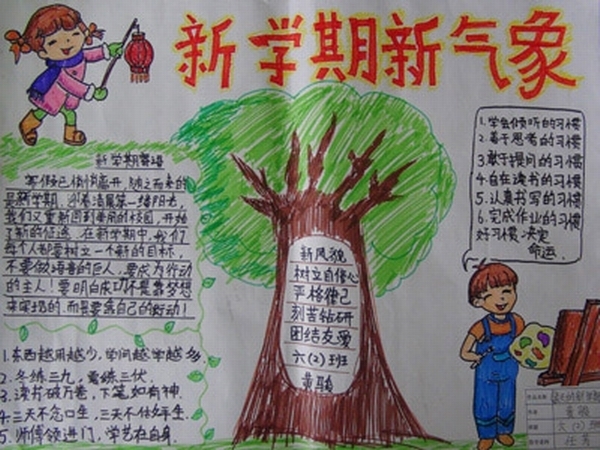 新学期新气象
新学期寄语
寒假已悄悄离开,随之而来的
是新学期,沐浴清晨第一缕阳光,
我们又重新回到美丽的校园,开始
了新的征途。在新学期中,我们
每个人都要树立一个新的目标,
不要做语言的巨人,要成为行动
的主人!要明白成功不是靠梦想
来实现的,而是要靠自己的行动!
1.东西越用越少,学问越学越多.
2.冬练三九,夏练三伏.
3.读书破万卷,下笔如有神.
4.三天不念口生,三天不做手生.
5.师傅领进门,学艺在自身.
新风貌
树立自信心
严格律己
刻苦钻研
团结友爱
六(2)班
黄骏
1.学会倾听的习惯
2.善于思考的习惯
3.敢于提问的习惯
4.自在读书的习惯
5.认真书写的习惯
6.完成作业的习惯
好习惯,决定
命运.
六(2)班